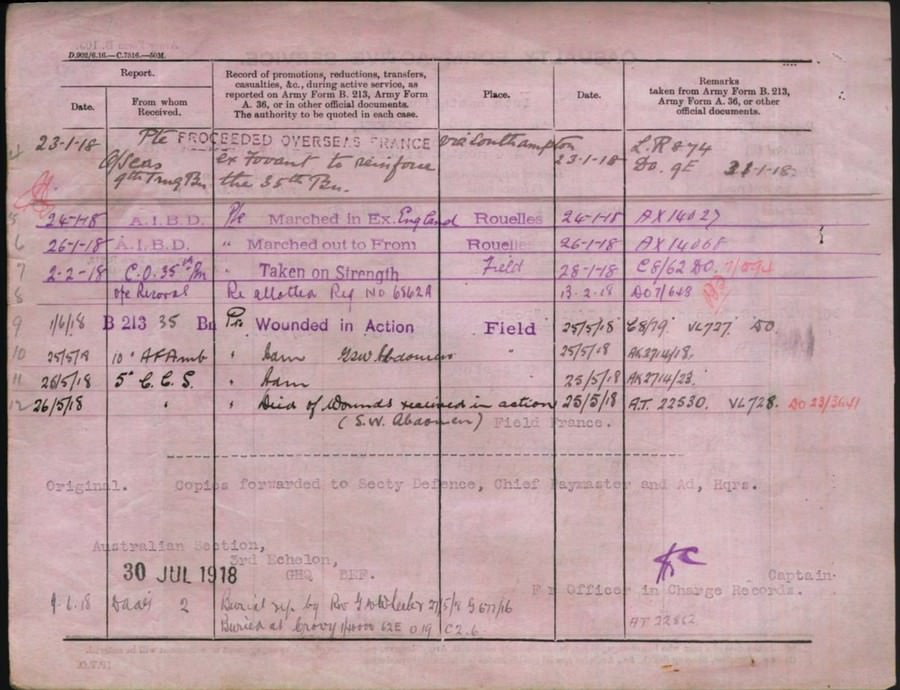 D.902/6.16.—C.7516.—50M.
Report.
Record of promotions, reductions, transfers, casualties, &c., during active service, as reported on Army Form B. 213, Army Form A. 36, or in other official documents. The authority to be quoted in each case.
Place.
Date.
Remarks taken from Army Form B. 213, Army Form A. 36, or other official documents.
Date.
From whom Received.
4 23-1-18 Pte PROCEEDED OVERSEAS FRANCE via Southampton 23-1-18 L.R 874
O/Seas ex Fovant to reinforce Do. 9E
9th Trng Bn the 35th Bn.
5 24-1-18 A.I.B.D. Pte Marched in Ex. England Rouelles 24-1-18 AX14027
6 26-1-18 A.I.B.D. " Marched out to From Rouelles 26-1-18 AX14068
7 2-2-18 C.O. 35th Bn " Taken on Strength Field 28-1-18 C8/62 DO.
8 Re allotted Reg No 6862A 13-2-18 DO7/648
9 1/6/18 B 213 35 Bn Pte Wounded in Action Field 25/5/18 C8/79 VL727 DO.
10 25/5/18 10" AFAmb " Gsw Abdomen " 25/5/18 AK2714/18.
11 26/5/18 5" C.C.S. " 25/5/18 AK2714/23.
12 26/5/18 " " Died of Wounds received in action 25/5/18 A.T. 22530. VL728. DO 23/3641
(S.W. Abdomen) Field France.
Original. Copies forwarded to Secty Defence, Chief Paymaster and Ad, Hqrs.
Australian Section,
3rd Echelon,
30 JUL 1918
GHQ BEF.
Captain.
For Officer in Charge Records.
2 Burial rep by Rev
Buried at 62E C2.6
AT 22862